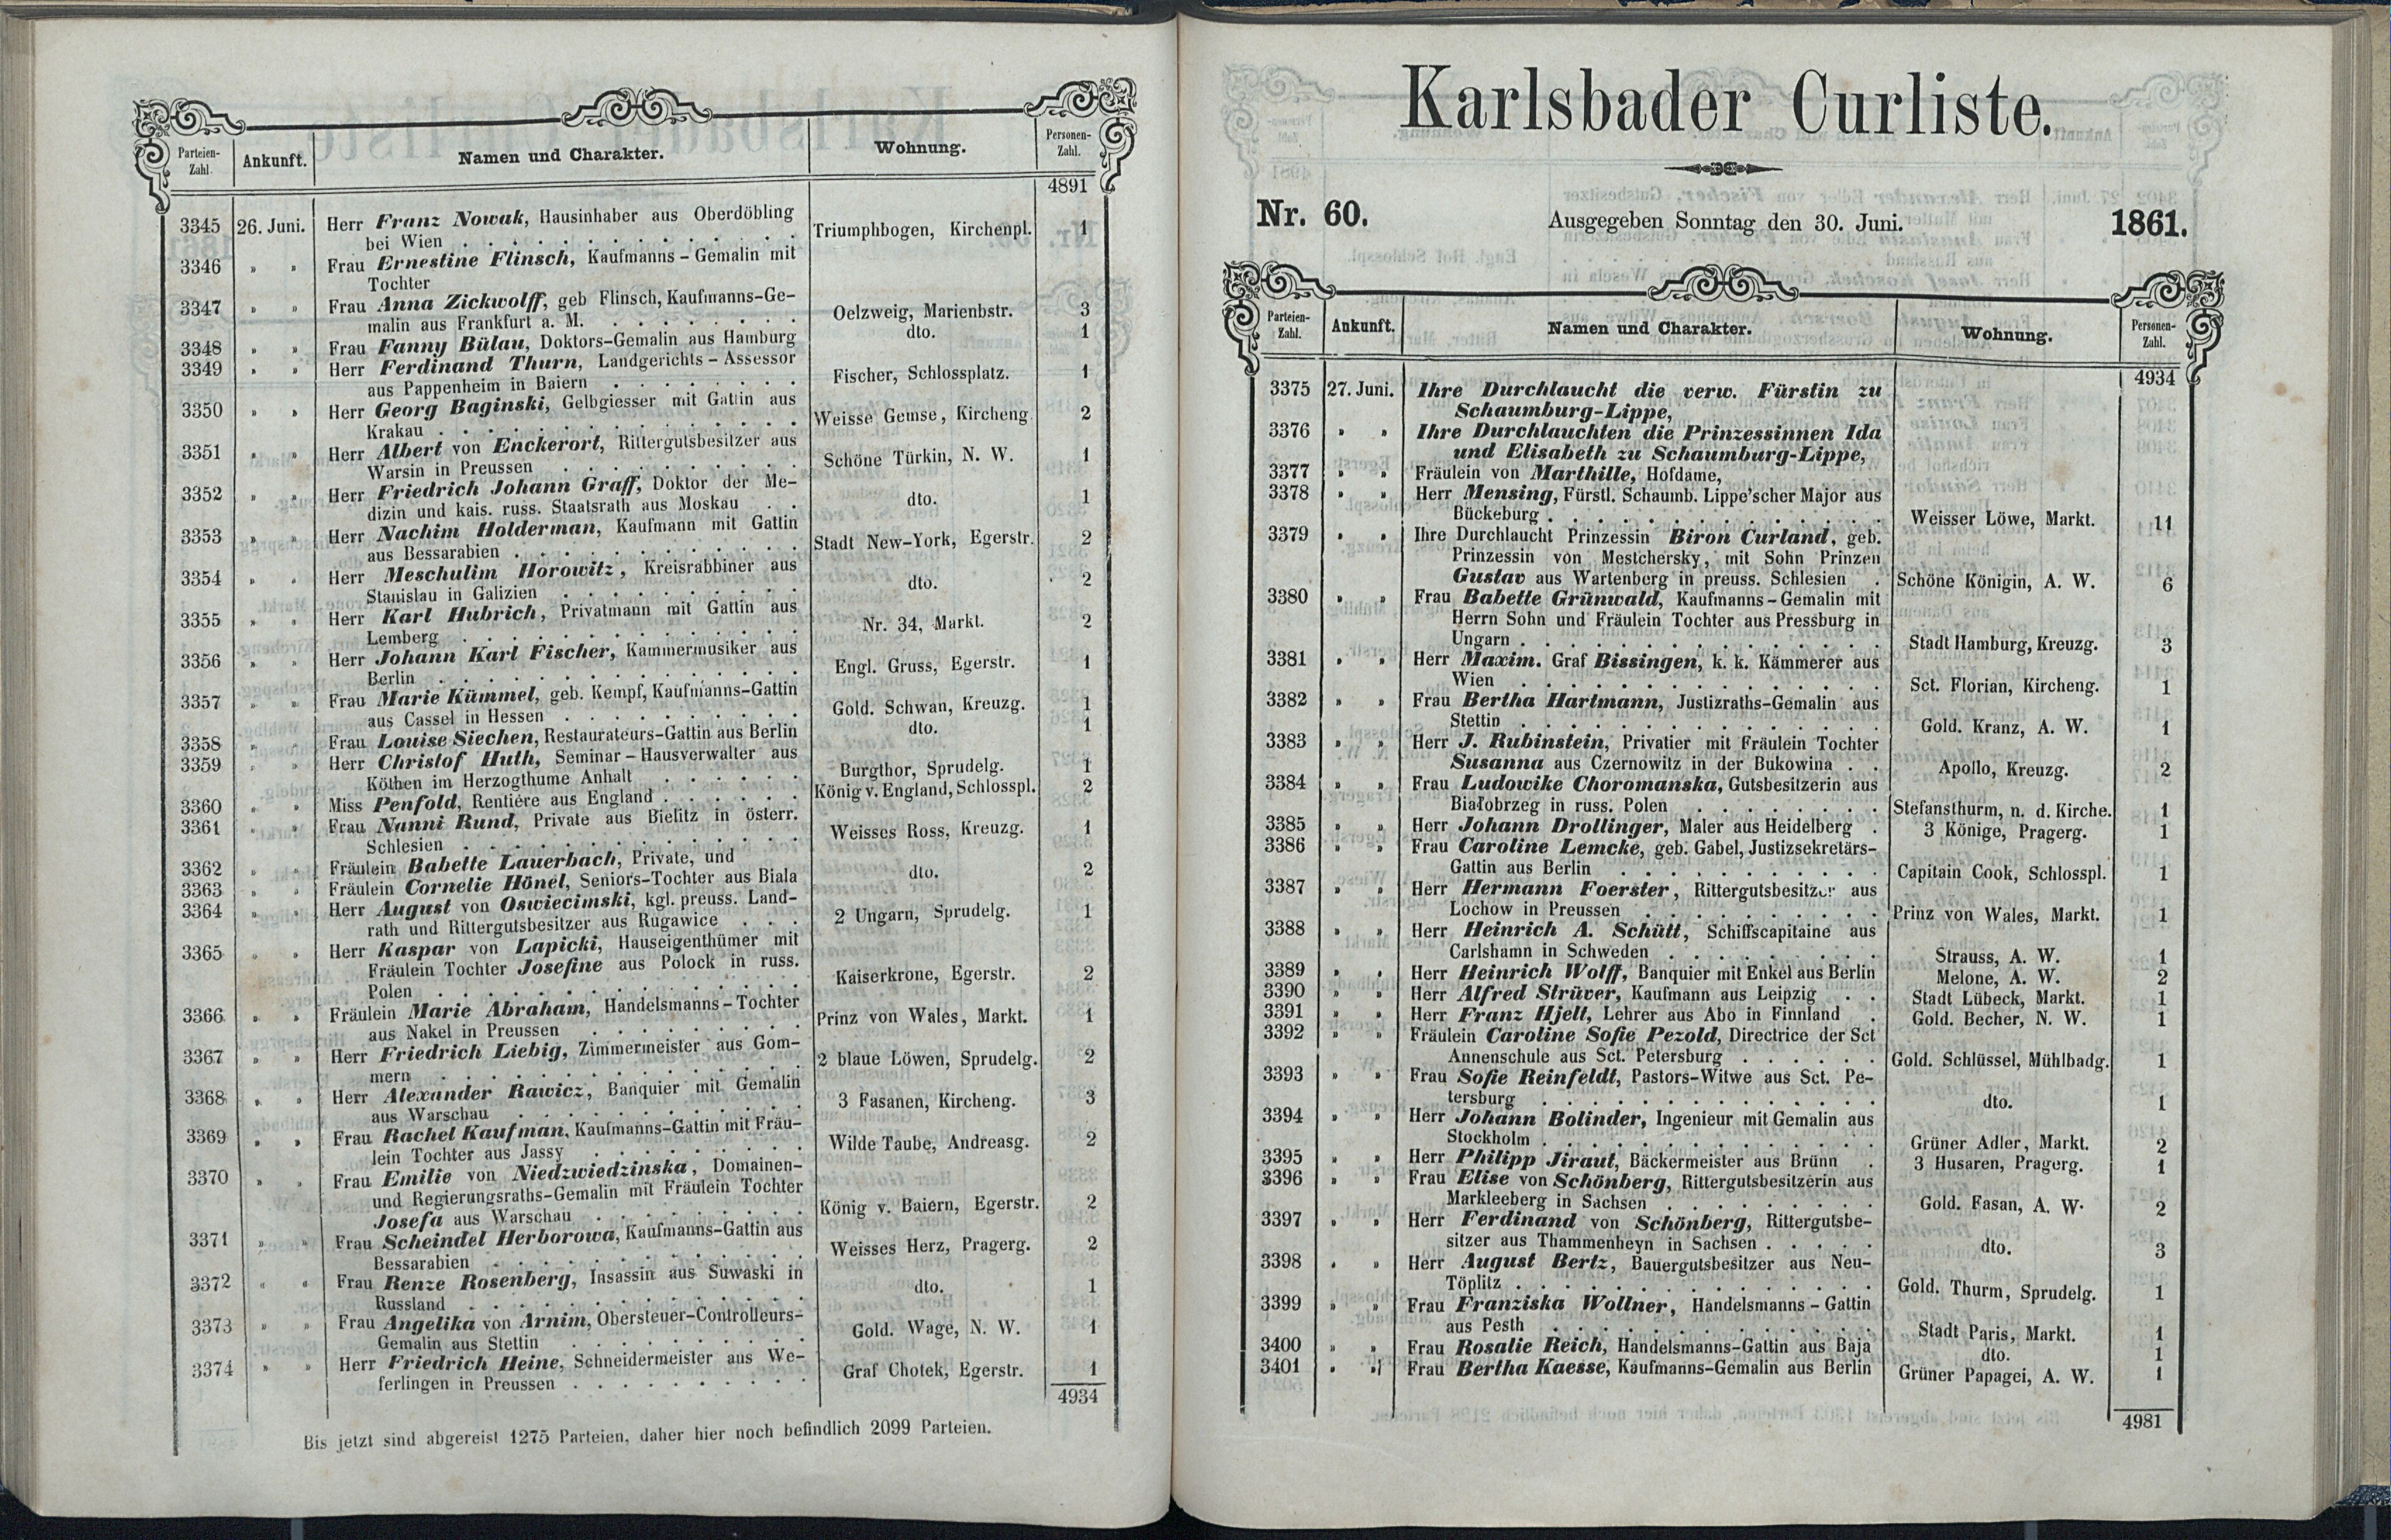 Parteien-Zahl.
Ankunft.
Namen und Charakter.
Wohnung.
Personen-Zahl.
4891
3345 26. Juni. Herr Franz Nowak, Hausinhaber aus Oberdöbling
bei Wien . . . Triumphbogen, Kirchenpl. 1
3346 » » Frau Ernestine Flinsch, Kaufmanns-Gemalin mit
Tochter
3347 » » Frau Anna Zickwolff, geb Flinsch, Kaufmanns-Ge-
malin aus Frankfurt a. M. . . . Oelzweig, Marienbstr. 3
3348 » » Frau Fanny Bülau, Doktors-Gemalin aus Hamburg dto. 1
3349 » » Herr Ferdinand Thurn, Landgerichts-Assessor
aus Pappenheim in Baiern . . . Fischer, Schlossplatz. 1
3350 » » Herr Georg Baginski, Gelbgiesser mit Gattin aus
Krakau . . . Weisse Gemse, Kircheng. 2
3351 » » Herr Albert von Enckerort, Rittergutsbesitzer aus
Warsin in Preussen . . . Schöne Türkin, N. W. 1
3352 » » Herr Friedrich Johann Graff, Doktor der Me-
dizin und kais. russ. Staatsrath aus Moskau . . dto. 1
3353 » » Herr Nachim Holderman, Kaufmann mit Gattin
aus Bessarabien . . . Stadt New-York, Egerstr. 2
3354 » » Herr Meschulim Horowitz, Kreisrabbiner aus
Stanislau in Galizien . . . dto. 2
3355 » » Herr Karl Hubrich, Privatmann mit Gattin aus
Lemberg . . . Nr. 34, Markt. 2
3356 » » Herr Johann Karl Fischer, Kammermusiker aus
Berlin . . . Engl. Gruss, Egerstr. 1
3357 » » Frau Marie Kümmel, geb. Kempf, Kaufmanns-Gattin
aus Cassel in Hessen . . . Gold. Schwan, Kreuzg. 1
3358 » » Frau Louise Siechen, Restaurateurs-Gattin aus Berlin dto. 1
3359 » » Herr Christof Huth, Seminar-Hausverwalter aus
Köthen im Herzogthume Anhalt . . . Burgthor, Sprudelg. 1
3360 » » Miss Penfold, Rentiére aus England . . . König v. England, Schlosspl. 2
3361 » » Frau Nanni Rund, Private aus Bielitz in österr.
Schlesien . . . Weisses Ross, Kreuzg. 1
3362 » » Fräulein Babette Lauerbach, Private, und
3363 » » Fräulein Cornelie Hönel, Seniors-Tochter aus Biala dto. 2
3364 » » Herr August von Oswiecimski, kgl. preuss. Land-
rath und Rittergutsbesitzer aus Rugawice . . . 2 Ungarn, Sprudelg. 1
3365 » » Herr Kaspar von Lapicki, Hauseigenthümer mit
Fräulein Tochter Josefine aus Polock in russ.
Polen . . . Kaiserkrone, Egerstr. 2
3366 » » Fräulein Marie Abraham, Handelsmanns-Tochter
aus Nakel in Preussen . . . Prinz von Wales, Markt. 1
3367 » » Herr Friedrich Liebig, Zimmermeister aus Gom-
mern . . . 2 blaue Löwen, Sprudelg. 2
3368 » » Herr Alexander Rawicz, Banquier mit Gemalin
aus Warschau . . . 3 Fasanen, Kircheng. 3
3369 » » Frau Rachel Kaufman, Kaufmanns-Gattin mit Fräu-
lein Tochter aus Jassy . . . Wilde Taube, Andreasg. 2
3370 » » Frau Emilie von Niedzwiedzinska, Domainen-
und Regierungsraths-Gemalin mit Fräulein Tochter
Josefa aus Warschau . . . König v. Baiern, Egerstr. 2
3371 » » Frau Scheindel Herborowa, Kaufmanns-Gattin aus
Bessarabien . . . Weisses Herz, Pragerg. 2
3372 « « Frau Renze Rosenberg, Insassin aus Suwaski in
Russland . . . dto. 1
3373 » » Frau Angelika von Arnim, Obersteuer-Controlleurs-
Gemalin aus Stettin . . . Gold. Wage, N. W. 1
3374 » » Herr Friedrich Heine, Schneidermeister aus We-
ferlingen in Preussen . . . Graf Chotek, Egerstr. 1
4934
Bis jetzt sind abgereist 1275 Parteien, daher hier noch befindlich 2099 Parteien.
Karlsbader Curliste.
Nr. 60. Ausgegeben Sonntag den 30. Juni. 1861.
Parteien-Zahl.
Ankunft.
Namen und Charakter.
Wohnung.
Personen-Zahl.
4934
3375 27. Juni. Ihre Durchlaucht die verw. Fürstin zu
Schaumburg-Lippe,
3376 » » Ihre Durchlauchten die Prinzessinnen Ida
und Elisabeth zu Schaumburg-Lippe,
3377 » » Fräulein von Marthille, Hofdame,
3378 » » Herr Mensing, Fürstl. Schaumb. Lippe'scher Major aus
Bückeburg . . . Weisser Löwe, Markt. 11
3379 » » Ihre Durchlaucht Prinzessin Biron Curland, geb.
Prinzessin von Mestchersky, mit Sohn Prinzen
Gustav aus Wartenberg in preuss. Schlesien . Schöne Königin, A. W. 6
3380 » » Frau Babette Grünwald, Kaufmanns-Gemalin mit
Herrn Sohn und Fräulein Tochter aus Pressburg in
Ungarn . . . Stadt Hamburg, Kreuzg. 3
3381 » » Herr Maxim. Graf Bissingen, k. k. Kämmerer aus
Wien . . . Sct. Florian, Kircheng. 1
3382 » » Frau Bertha Hartmann, Justizraths-Gemalin aus
Stettin . . . Gold. Kranz, A. W. 1
3383 » » Herr J. Rubinstein, Privatier mit Fräulein Tochter
Susanna aus Czernowitz in der Bukowina . . Apollo, Kreuzg. 2
3384 » » Frau Ludowike Choromanska, Gutsbesitzerin aus
Białobrzeg in russ. Polen . . . Stefansthurm, n. d. Kirche. 1
3385 » » Herr Johann Drollinger, Maler aus Heidelberg . 3 Könige, Pragerg. 1
3386 » » Frau Caroline Lemcke, geb. Gabel, Justizsekretärs-
Gattin aus Berlin . . . Capitain Cook, Schlosspl. 1
3387 » » Herr Hermann Foerster, Rittergutsbesitzer aus
Lochow in Preussen . . . Prinz von Wales, Markt. 1
3388 » » Herr Heinrich A. Schütt, Schiffscapitaine aus
Carlshamn in Schweden . . . Strauss, A. W. 1
3389 » » Herr Heinrich Wolff, Banquier mit Enkel aus Berlin Melone, A. W. 2
3390 » » Herr Alfred Strüver, Kaufmann aus Leipzig . . Stadt Lübeck, Markt. 1
3391 » » Herr Franz Hjelt, Lehrer aus Abo in Finnland . Gold. Becher, N. W. 1
3392 » » Fräulein Caroline Sofie Pezold, Directrice der Sct
Annenschule aus Sct. Petersburg . . . Gold. Schlüssel, Mühlbadg. 1
3393 » » Frau Sofie Reinfeldt, Pastors-Witwe aus Sct. Pe-
tersburg . . . dto. 1
3394 » » Herr Johann Bolinder, Ingenieur mit Gemalin aus
Stockholm . . . Grüner Adler, Markt. 2
3395 » » Herr Philipp Jiraut, Bäckermeister aus Brünn . 3 Husaren, Pragerg. 1
3396 » » Frau Elise von Schönberg, Rittergutsbesitzerin aus
Markleeberg in Sachsen . . . Gold. Fasan, A. W. 2
3397 » » Herr Ferdinand von Schönberg, Rittergutsbe-
sitzer aus Thammenheyn in Sachsen . . . dto. 3
3398 » » Herr August Bertz, Bauergutsbesitzer aus Neu-
Töplitz . . . Gold. Thurm, Sprudelg. 1
3399 » » Frau Franziska Wollner, Handelsmanns-Gattin
aus Pesth . . . Stadt Paris, Markt. 1
3400 » » Frau Rosalie Reich, Handelsmanns-Gattin aus Baja dto. 1
3401 » » Frau Bertha Kaesse, Kaufmanns-Gemalin aus Berlin Grüner Papagei, A. W. 1
4981